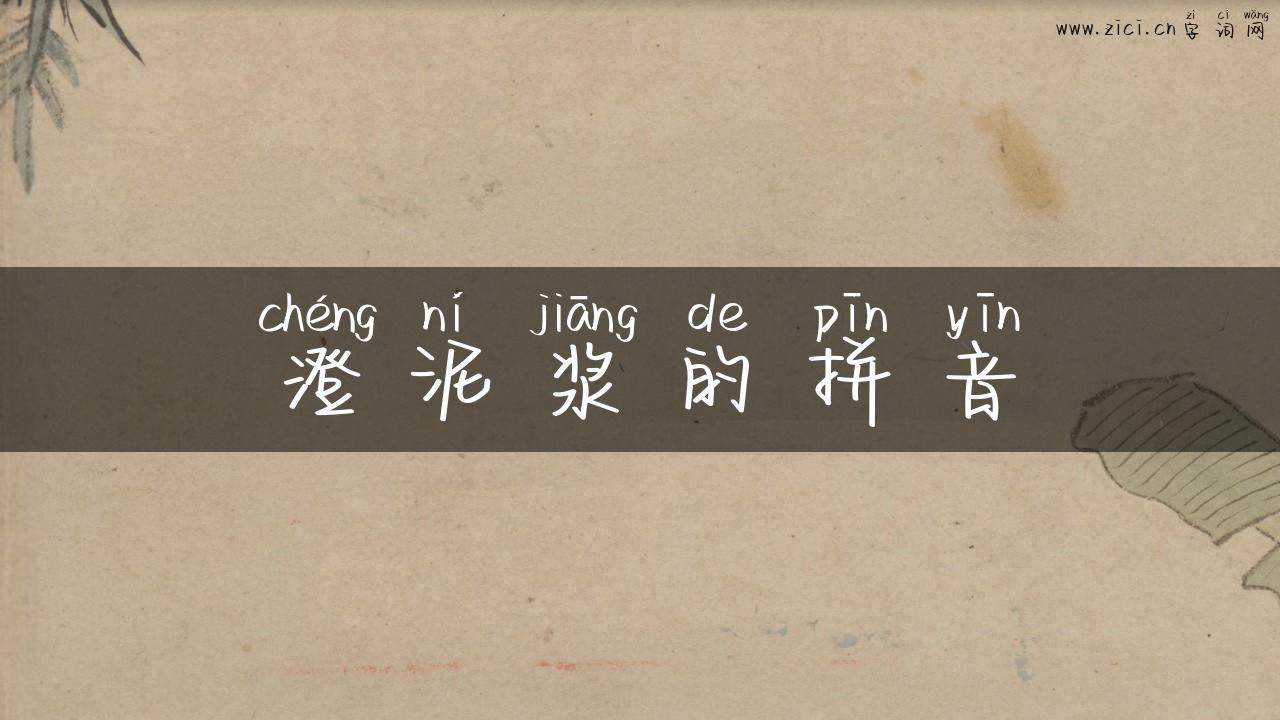 zì cí wǎng
www.zici.cn 字词网
chéng ní jiāng de pīn yīn
澄泥浆的拼音